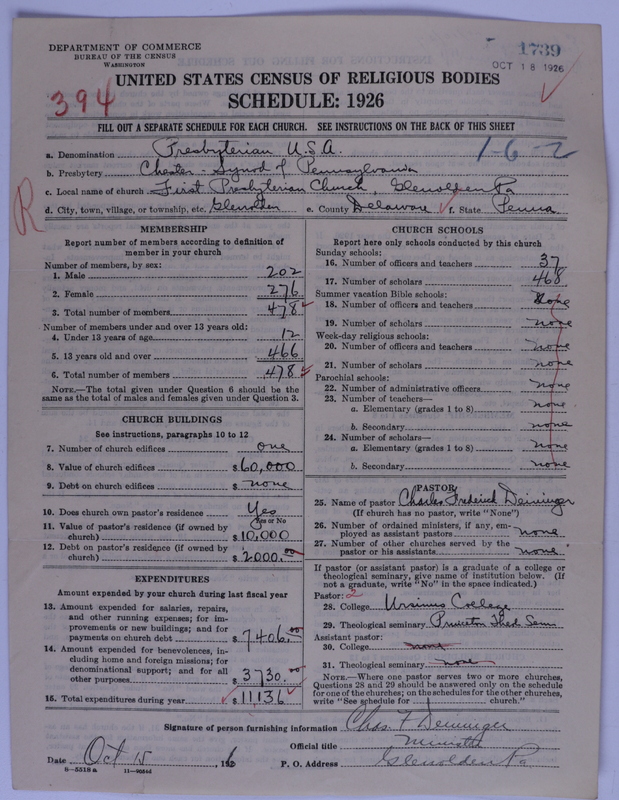 DEPARTMENT OF COMMERCE
BUREAU OF THE CENSUS
WASHINGTON
1739
OCT 18 1926
394
UNITED STATES CENSUS OF RELIGIOUS BODIES
SCHEDULE: 1926
FILL OUT A SEPARATE SCHEDULE FOR EACH CHURCH. SEE INSTRUCTIONS ON THE BACK OF THIS SHEET
1-6-2
R
a. Denomination Presbyterian U.S.A.
b. Presbytery Chester - Synod of Pennsylvania
c. Local name of church First Presbyterian Church, Glenolden Pa
d. City, town, village, or township, etc. Glenolden e. County Delaware f. State Penna
MEMBERSHIP
Report number of members according to definition of
member in your church
Number of members, by sex:
1. Male 202
2. Female 276
3. Total number of members 478
Number of members under and over 13 years old:
4. Under 13 years of age 12
5. 13 years old and over 466
6. Total number of members 478
NOTE.—The total given under Question 6 should be
same as the total of males and females given under Question 3.
CHURCH BUILDINGS
See instructions, paragraphs 10 to 12
7. Number of church edifices one
8. Value of church edifices $60,000
9. Debt on church edifices $ none
10. Does church own pastor's residence? Yes
Yes or No
11. Value of pastor's residence (if owned by
church) $10,000
12. Debt on pastor's residence (if owned by
church) $2000.00
EXPENDITURES
Amount expended by your church during last fiscal year
13. Amount expended for salaries, repairs,
and other running expenses; for im-
provements or new buildings; and for
payments on church debt $7406.00
14. Amount expended for benevolences, in-
cluding home and foreign missions; for
denominational support; and for all
other purposes $3730.00
15. Total expenditures during year $11,136
CHURCH SCHOOLS
Report here only schools conducted by this church
Sunday schools:
16. Number of officers and teachers 37
17. Number of scholars 468
Summer vacation Bible schools:
18. Number of officers and teachers none
19. Number of scholars none
Week-day religious schools:
20. Number of officers and teachers none
21. Number of scholars none
Parochial schools:
22. Number of administrative officers none
23. Number of teachers—
a. Elementary (grades 1 to 8) none
b. Secondary none
24. Number of scholars—
a. Elementary (grades 1 to 8) none
b. Secondary none
PASTOR
25. Name of pastor Charles Frederick Deininger
(If church has no pastor, write "None")
26. Number of ordained ministers, if any, em-
ployed as assistant pastors none
27. Number of other churches served by the
pastor or his assistants none
If pastor (or assistant pastor) is a graduate of a college or
theological seminary, give name of institution below. (If
not a graduate, write "No" in the space indicated.)
Pastor: 2
28. College Ursinus College
29. Theological seminary Princeton Theol. Sem
Assistant pastor:
30. College none
31. Theological seminary none
NOTE.—Where one pastor serves two or more churches,
Questions 28 and 29 should be answered only on the schedule
for one of the churches; on the schedules for the other churches,
write "See schedule for church."
Signature of person furnishing information Chas. F. Deininger
Official title Minister
Date Oct 15, 1926 P. O. Address Glenolden Pa
8-5518a